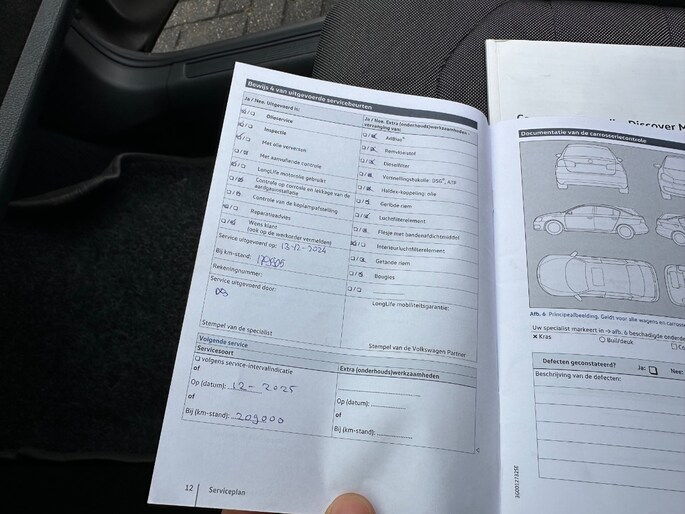 Bewijs 4 van uitgevoerde servicebeurten
Ja / Nee. Uitgevoerd is:
Olieservice
Inspectie
Met olie verversen
Met aanvullende controle
LongLife motorolie gebruikt
Controle op corrosie en lekkage van de
aardgasinstallatie
Controle van de koplampafstelling
Reparatieadvies
Wens klant
(ook op de werkorder vermelden)
Service uitgevoerd op: 13-12-2024
Bij km-stand:
Rekeningnummer:
Service uitgevoerd door:
Stempel van de specialist
Ja / Nee. Extra (onderhouds)werkzaamheden -
vervanging van:
AdBlue®
Remvloeistof
Dieselfilter
Versnellingsbakolie: DSG®, ATF
Haldex-koppeling: olie
Geribde riem
Luchtfilterelement
Flesje met bandenafdichtmiddel
Interieurluchtfilterelement
Getande riem
Bougies
LongLife mobiliteitsgarantie:
Stempel van de Volkswagen Partner
Volgende service
Servicesoort
volgens service-intervalindicatie
of
Op (datum): 12 - 2025
of
Bij (km-stand): 209000
Extra (onderhouds)werkzaamheden
Op (datum):
of
Bij (km-stand):
12 Serviceplan
Discover M
Documentatie van de carrosseriecontrole
Afb. 6 Principeafbeelding: Geldt voor alle wagens en carross
Uw specialist markeert in → afb. 6 beschadigde onderde
x Kras
Buil/deuk
Defecten geconstateerd?
Ja:
Nee:
Beschrijving van de defecten: